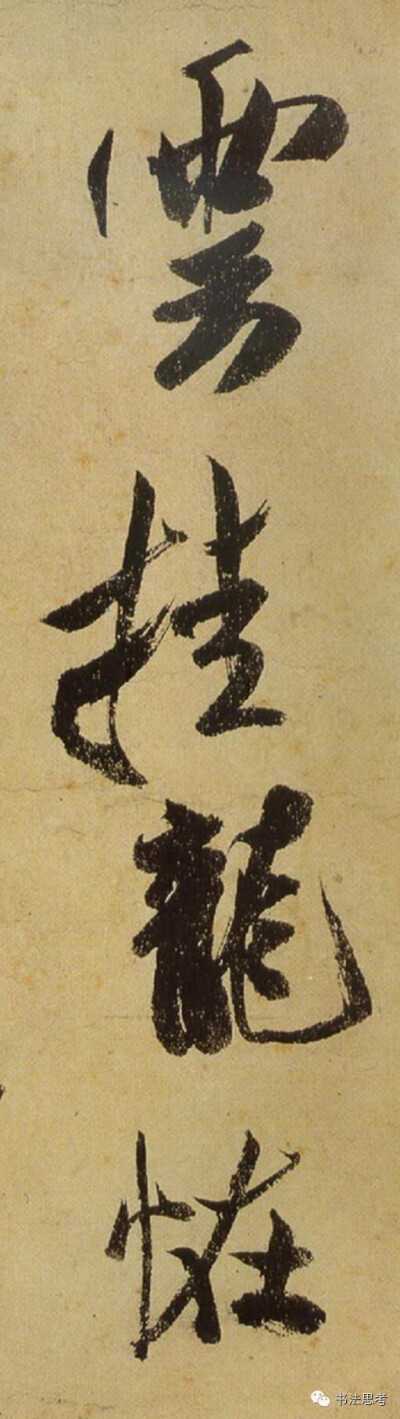 雲挂龍恠
书法思考